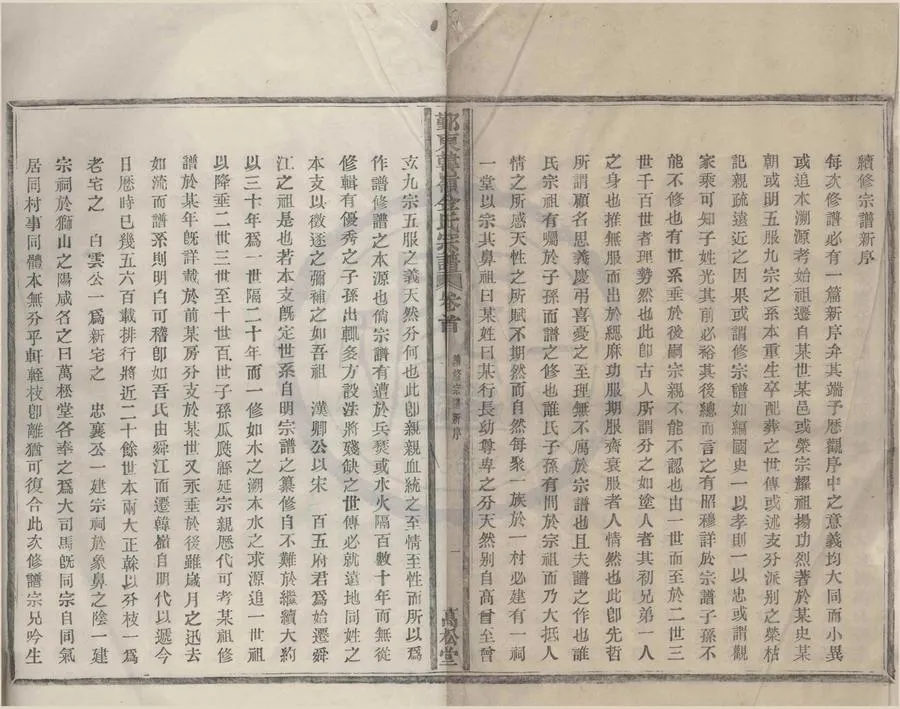 續修宗譜新序
每次修譜必有一篇新序弁其端予歷觀序中之意義均大同而小異
或追本溯源者始祖遷自某世某邑或榮宗耀祖揚功烈著於某史某
朝或明五服九宗之系本重生卒配葬之世傳或述支分派別之榮枯
記親疏遠近之因果或謂修宗譜如編國史一以孝則一以忠或謂觀
家乘可知子姓光其前必裕其後總而言之有昭穆詳於宗譜子孫不
能不修也有世系垂於後嗣宗親不能不認也由一世而至於二世三
世千百世者理勢然也此卽古人所謂分之如塗人者其初兄弟一人
之身也推無服而出於緦麻功服期服齊衰服者人情然也此卽先哲
所謂顧名思義慶弔喜憂之至理無不寓於宗譜也且夫譜之作也誰
氏宗祖有囑於子孫而譜之修也誰氏子孫有問於宗祖而乃大抵人
情之所感天性之所賦不期然而自然每聚一族於一村必建有一祠
一堂以宗其鼻祖曰某姓曰某行長幼尊卑之分天然別自高曾至曾
鄞東韓嶺金氏宗譜 卷首 續修宗譜新序 一 萬松堂
玄九宗五服之義天然分何也此卽親親血統之至情至性而所以爲
作譜修譜之本源也倘宗譜有遭於兵燹或水火隔百數十年而無從
修輯有優秀之子孫出輒多方設法將殘缺之世傳必就遠地同姓之
本支以徵逐之彌補之如吾祖 漢卿公以宋 百五府君爲始遷舜
江之祖是也若本支旣定世系自明宗譜之纂修自不難於繼續大約
以三十年爲一世隔二十年而一修如水之溯本水之求源追一世祖
以降垂二世三世至十世百世子孫瓜瓞緜延宗親歷代可考某祖修
譜於某年旣詳載於前某房分支於某世又永垂於後雖歲月之迅去
如流而譜系則明白可稽卽如吾氏由舜江而遷韓嶺自明代以遞今
日歷時已幾五六百載排行將近二十餘世本兩大正榦以分枝一爲
老宅之 白雲公一爲新宅之 忠襄公一建宗祠於象鼻之陰一建
宗祠於獅山之陽咸名之曰萬松堂各奉之爲大司馬旣同宗自同氣
居同村事同體本無分乎軒輊枝卽離猶可復合此次修譜宗兄吟生